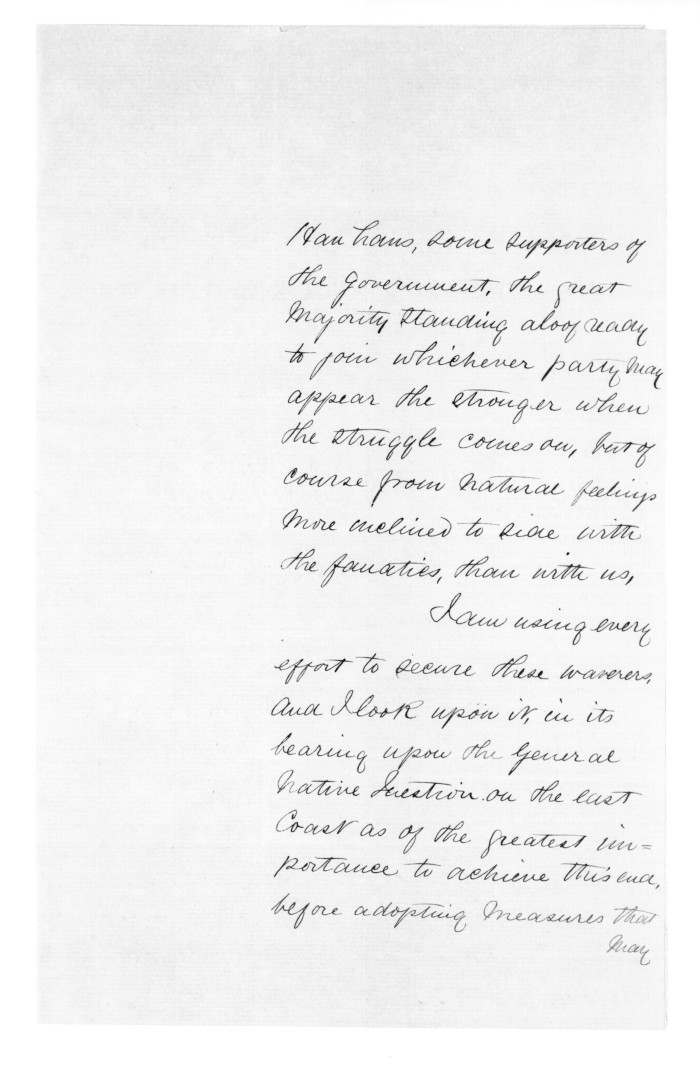 Hau haus, some supporters of
the Government, the great
Majority standing aloof ready
to join whichever party may
appear the stronger when
the struggle comes on, but of
course from natural feelings
more inclined to side with
the fanatics, than with us,
I am using every
effort to secure these waverers,
and I look upon it, in its
bearing upon the General
Native Question on the East
Coast as of the greatest im=
portance to achieve this end,
before adopting measures that
may